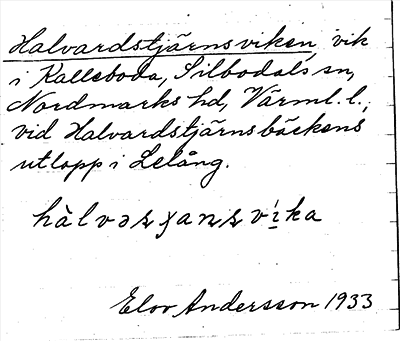 Halvardstjärnsviken, vik
i Kalleboda, Silbodals sn,
Nordmarks hd, Värml. l.,
vid Halvardstjärnsbäckens
utlopp i Lelång.
Elov Andersson 1933